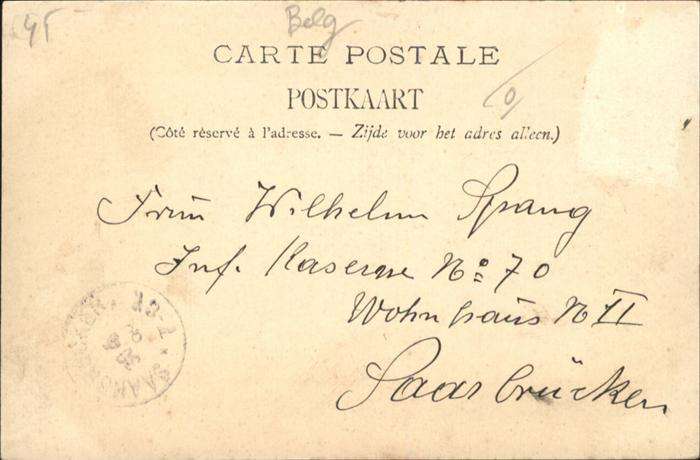 45
Belg
CARTE POSTALE
POSTKAART
(Côté réservé à l'adresse. — Zijde voor het adres alleen.)
Frau Wilhelm Spang
Inf. Kaserne No 70
Wohnhaus N II
Saarbrücken